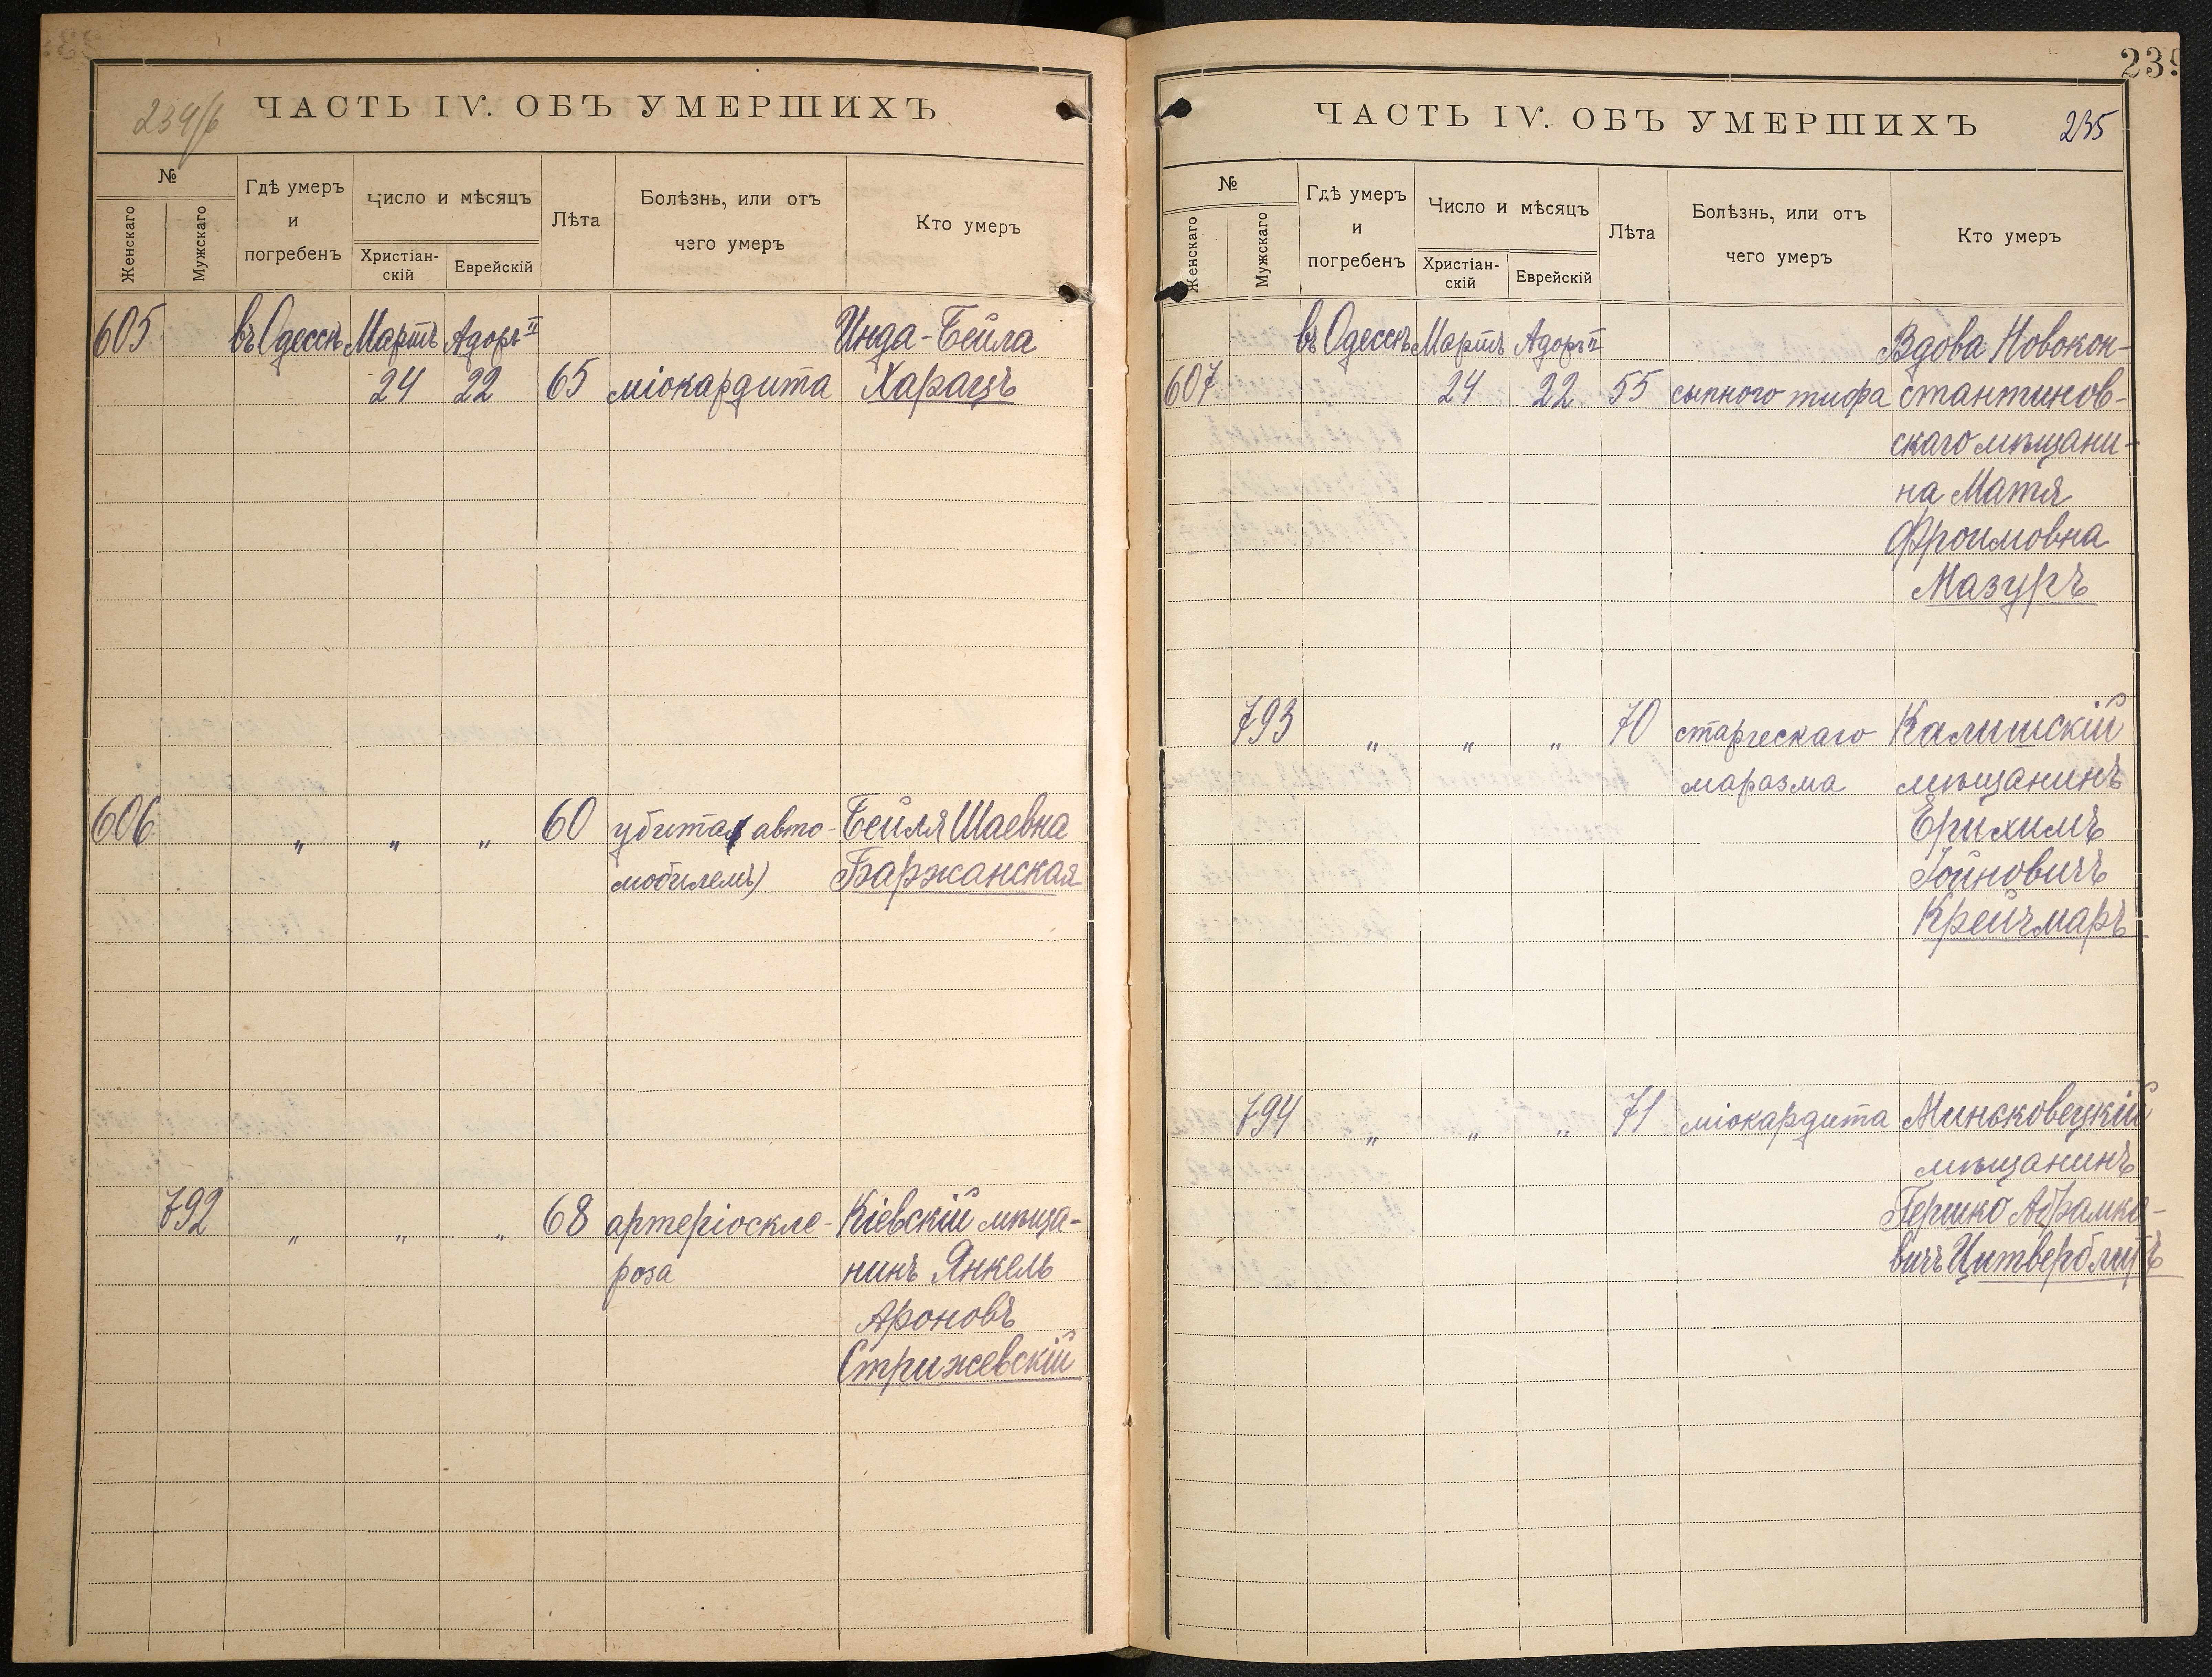 234/б
ЧАСТЬ IV. ОБЪ УМЕРШИХЪ
№
Женскаго
Мужскаго
Гдѣ умеръ
и
погребенъ
Число и мѣсяцъ
Христіан-
скій
Еврейскій
Лѣта
Болѣзнь, или отъ
чего умеръ
Кто умеръ
605 въ Одессѣ Мартъ Адоръ II Инда-Бейла
24 22 65 міокардита Харацъ
606 " " " 60 убита (авто- Бейля Шаевна
мобилемъ) Баржанская
792 " " " 68 артеріоскле- Кіевскій мѣща-
роза нинъ Янкель
Ароновъ
Стрижевскій
239
ЧАСТЬ IV. ОБЪ УМЕРШИХЪ 235
№
Женскаго
Мужскаго
Гдѣ умеръ
и
погребенъ
Число и мѣсяцъ
Христіан-
скій
Еврейскій
Лѣта
Болѣзнь, или отъ
чего умеръ
Кто умеръ
въ Одессѣ Мартъ Адоръ II Вдова Новокон-
607 24 22 55 сыпного тифа стантинов-
скаго мѣщани-
на Матя
Фроимовна
Мазуръ
793 " " " 70 старческаго Калишскій
маразма мѣщанинъ
Ерихимъ
Іойновичъ
Крейчмаръ
794 " " " 71 міокардита Миньковецкій
мѣщанинъ
Гершко Абрамко-
вичъ Цитверблитъ